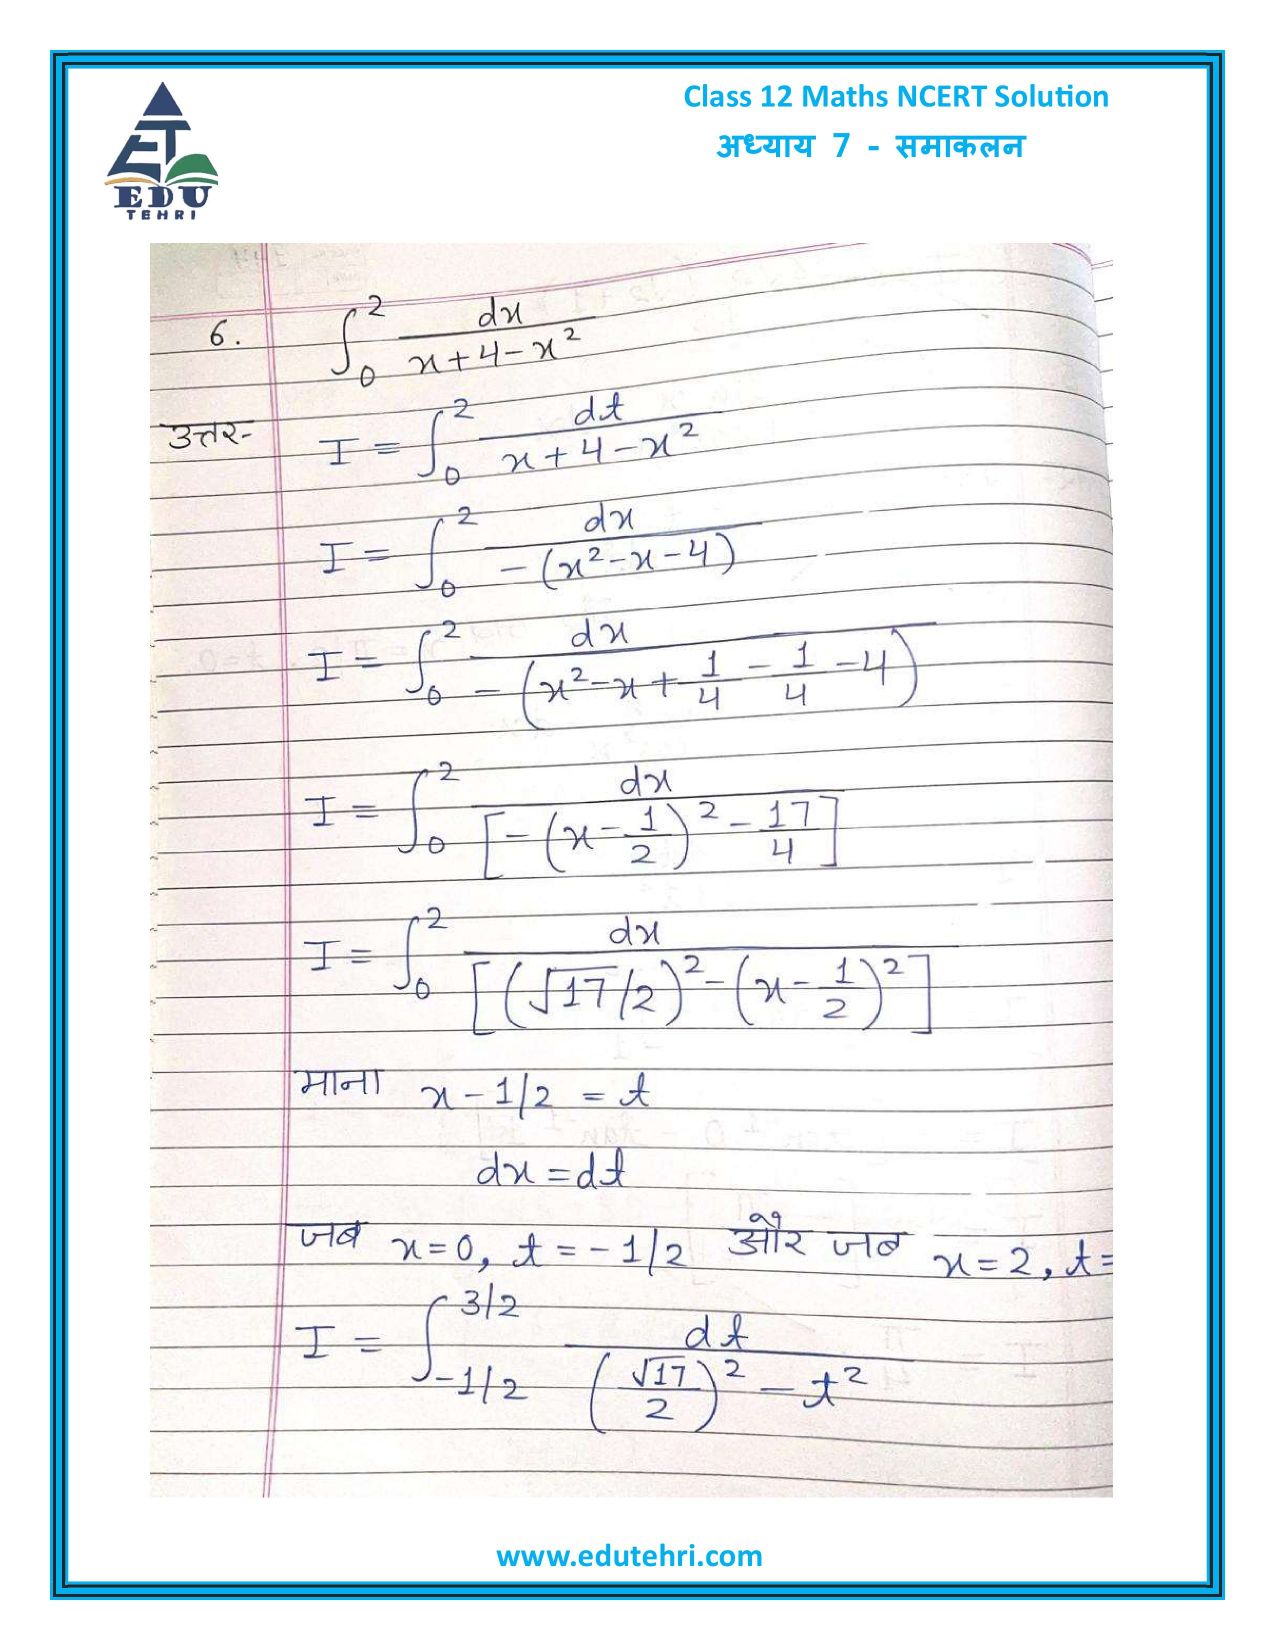 Class 12 Maths NCERT Solution
अध्याय 7 - समाकलन
EDU
TEHRI
6. ∫₀² dx / (x+4-x²)
उत्तर- I = ∫₀² dt / (x+4-x²)
I = ∫₀² dx / -(x²-x-4)
I = ∫₀² dx / -(x²-x+1/4-1/4-4)
I = ∫₀² dx / [-(x-1/2)²-17/4]
I = ∫₀² dx / [(√17/2)²-(x-1/2)²]
माना x-1/2 = t
dx=dt
जब x=0, t=-1/2 और जब x=2, t=
I = ∫₋₁/₂^3/2 dt / (√17/2)²-t²
www.edutehri.com